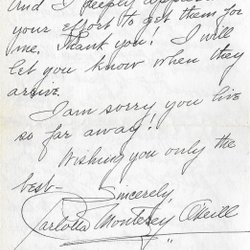 And I deeply appreci
your effort to get them for
me, Thank you! I will
let you know when they
arrive.
I am sorry you live
so far away!
Wishing you only the
best-
Sincerely,
Carlotta Monterey O'Neill